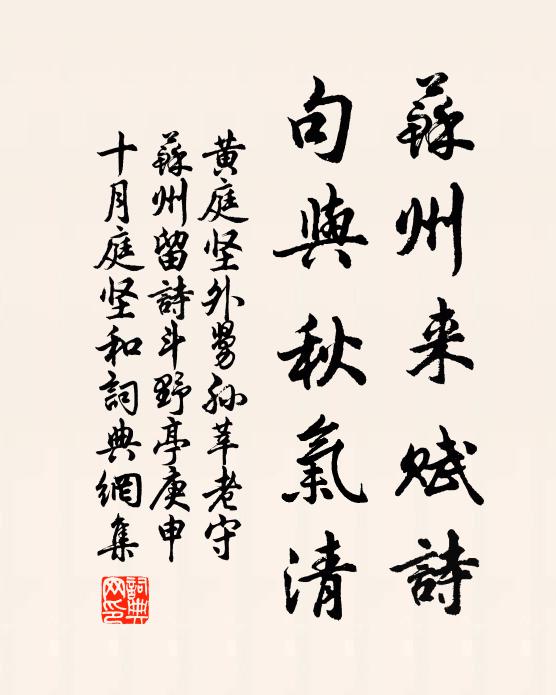 蘇州来赋詩
句與秋氣清
黄庭坚外舅孙莘老守
蘇州留詩斗野亭庚申
十月庭坚和詞典網集
詞典
网印